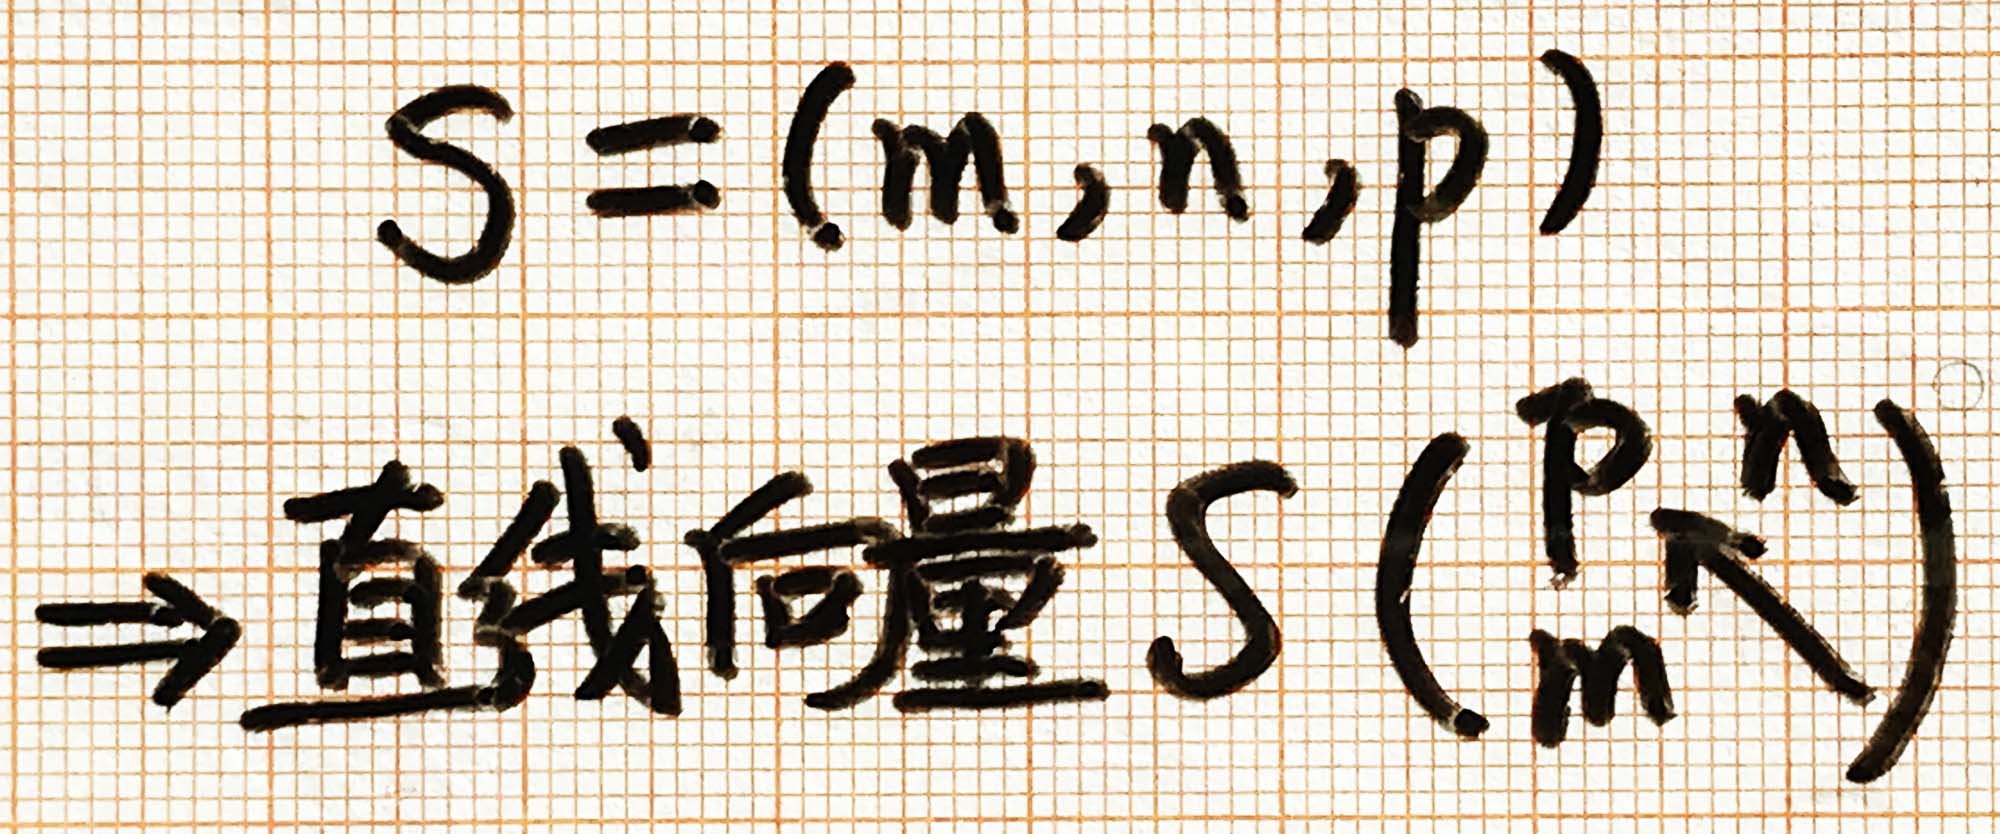 S=(m,n,p)
⇒直线向量S(p n
m↖)